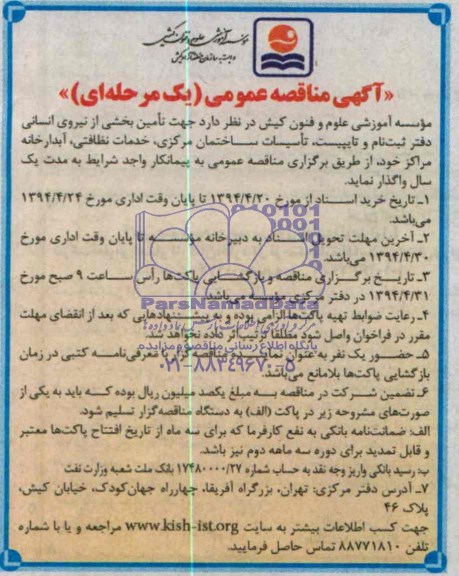 مؤسسه آموزشی علوم و فنون کیش
وابسته به سازمان منطقه آزاد کیش
«آگهی مناقصه عمومی (یک مرحله‌ای)»
مؤسسه آموزشی علوم و فنون کیش در نظر دارد جهت تأمین بخشی از نیروی انسانی
دفتر ثبت‌نام و تایپیست، تأسیسات ساختمان مرکزی، خدمات نظافتی، آبدارخانه
مراکز خود، از طریق برگزاری مناقصه عمومی به پیمانکار واجد شرایط به مدت یک
سال واگذار نماید.
۱ـ تاریخ خرید اسناد از مورخ ۱۳۹۴/۴/۲۰ تا پایان وقت اداری مورخ ۱۳۹۴/۴/۲۴
می‌باشد.
۲ـ آخرین مهلت تحویل اسناد به دبیرخانه مؤسسه تا پایان وقت اداری مورخ
۱۳۹۴/۴/۳۰ می‌باشد.
۳ـ تاریخ برگزاری مناقصه و بازگشایی پاکت‌ها رأس ساعت ۹ صبح مورخ
۱۳۹۴/۴/۳۱ در دفتر مرکزی مؤسسه می‌باشد.
ParsNamadData
۴ـ رعایت ضوابط تهیه پاکت‌ها الزامی بوده و به پیشنهادهایی که بعد از انقضای مهلت
مقرر در فراخوان واصل شود مطلقاً ترتیب اثر داده نخواهد شد.
پایگاه اطلاع رسانی مناقصه و مزایده
۵ـ حضور یک نفر به عنوان نماینده مناقصه گزار با معرفی‌نامه کتبی در زمان
بازگشایی پاکت‌ها بلامانع می‌باشد.
۰۲۱-۸۸۳۴۹۶۷۰-۵
۶ـ تضمین شرکت در مناقصه به مبلغ یکصد میلیون ریال بوده که باید به یکی از
صورت‌های مشروحه زیر در پاکت (الف) به دستگاه مناقصه‌گزار تسلیم شود.
الف: ضمانت‌نامه بانکی به نفع کارفرما که برای سه ماه از تاریخ افتتاح پاکت‌ها معتبر
و قابل تمدید برای دوره سه ماهه دوم نیز باشد.
ب: رسید بانکی واریز وجه نقد به حساب شماره ۱۷۴۸۰۰۰۰/۲۷ بانک ملت شعبه وزارت نفت
۷ـ آدرس دفتر مرکزی: تهران، بزرگراه آفریقا، چهارراه جهان‌کودک، خیابان کیش،
پلاک ۴۶
جهت کسب اطلاعات بیشتر به سایت www.kish-ist.org مراجعه و یا با شماره
تلفن ۸۸۷۷۱۸۱۰ تماس حاصل فرمایید.